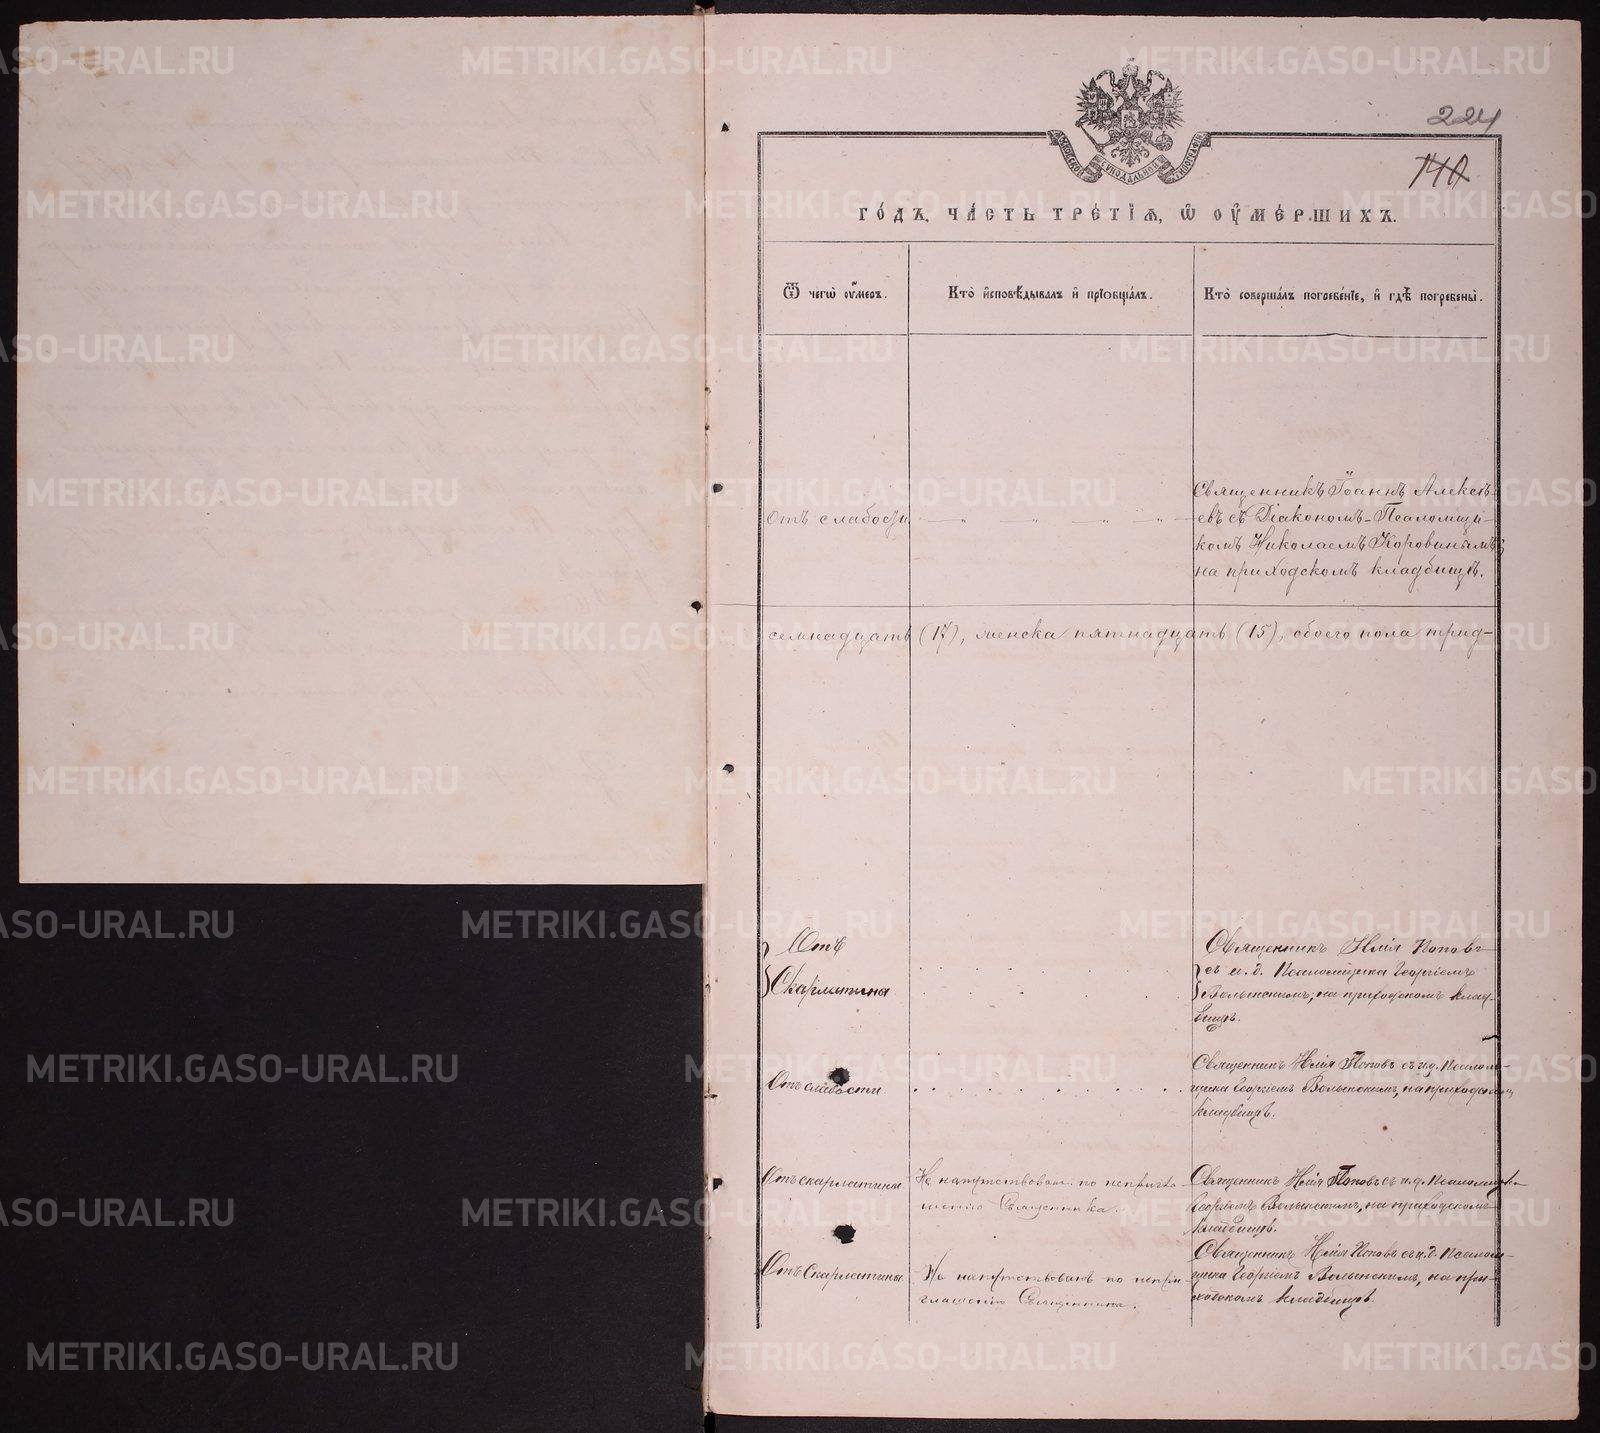 224
140
МОСКОВСКОЙ СѴНОДАЛЬНОЙ ТИПОГРАФІИ
ГО́ДЪ, ЧА́СТЬ ТРЕ́ТІѦ, Ѡ ОУ҆МЕ́РШИХЪ.
Ѿ чегѡ̀ оу҆́меръ.
Кто̀ и҆сповѣ́дывалъ и҆ прїобща́лъ.
Кто̀ соверша́лъ погребе́нїе, и҆ гдѣ̀ погребены̀.
Священникъ Іоаннъ Алексѣ-
Отъ слабости
евъ съ Діакономъ-Псаломщи-
комъ Николаемъ Коровинымъ;
на приходскомъ кладбищѣ.
семнадцать (17), женска пятнадцать (15), обоего пола трид-
Отъ
Скарлатина
Священникъ Илія Поповъ
съ и. д. Псаломщика Георгіемъ
Волынскимъ, на приходскомъ клад-
бищѣ.
Отъ слабости
Священникъ Илія Поповъ съ и.д. Псалом-
щика Георгіемъ Волынскимъ, на приходском
кладбищѣ.
Отъ скарлатины
Не напутствован по непригла-
шенію Священника.
Священникъ Илія Поповъ съ и.д. Псаломщика
Георгіемъ Волынскимъ, на приходскомъ
кладбищѣ.
Отъ Скарлатины
Не напутствованъ по непри-
глашенію Священника.
Священникъ Илія Поповъ съ и.д. Псалом-
щика Георгіемъ Волынскимъ, на при-
ходскомъ кладбищѣ.
METRIKI.GASO-URAL.RU